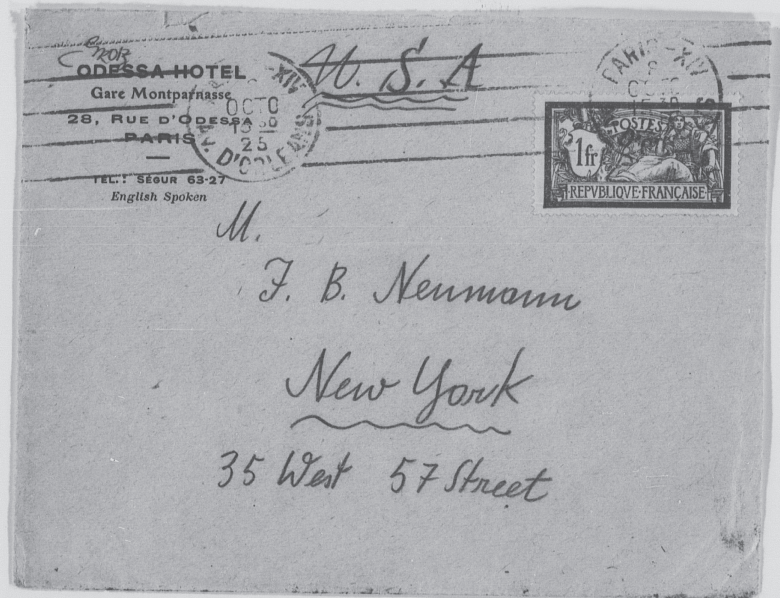 ODESSA HOTEL
Gare Montparnasse
28, RUE D'ODESSA
PARIS
TÉL.: SÉGUR 63-27
English Spoken
XIV
OCTO
15 30
25
AV. D'ORLEANS
U. S. A
PARIS-XIV
8
OCTO
15 30
POSTES
1fr
REPVBLIQVE·FRANÇAISE
M.
J. B. Neumann
New York
35 West 57 Street